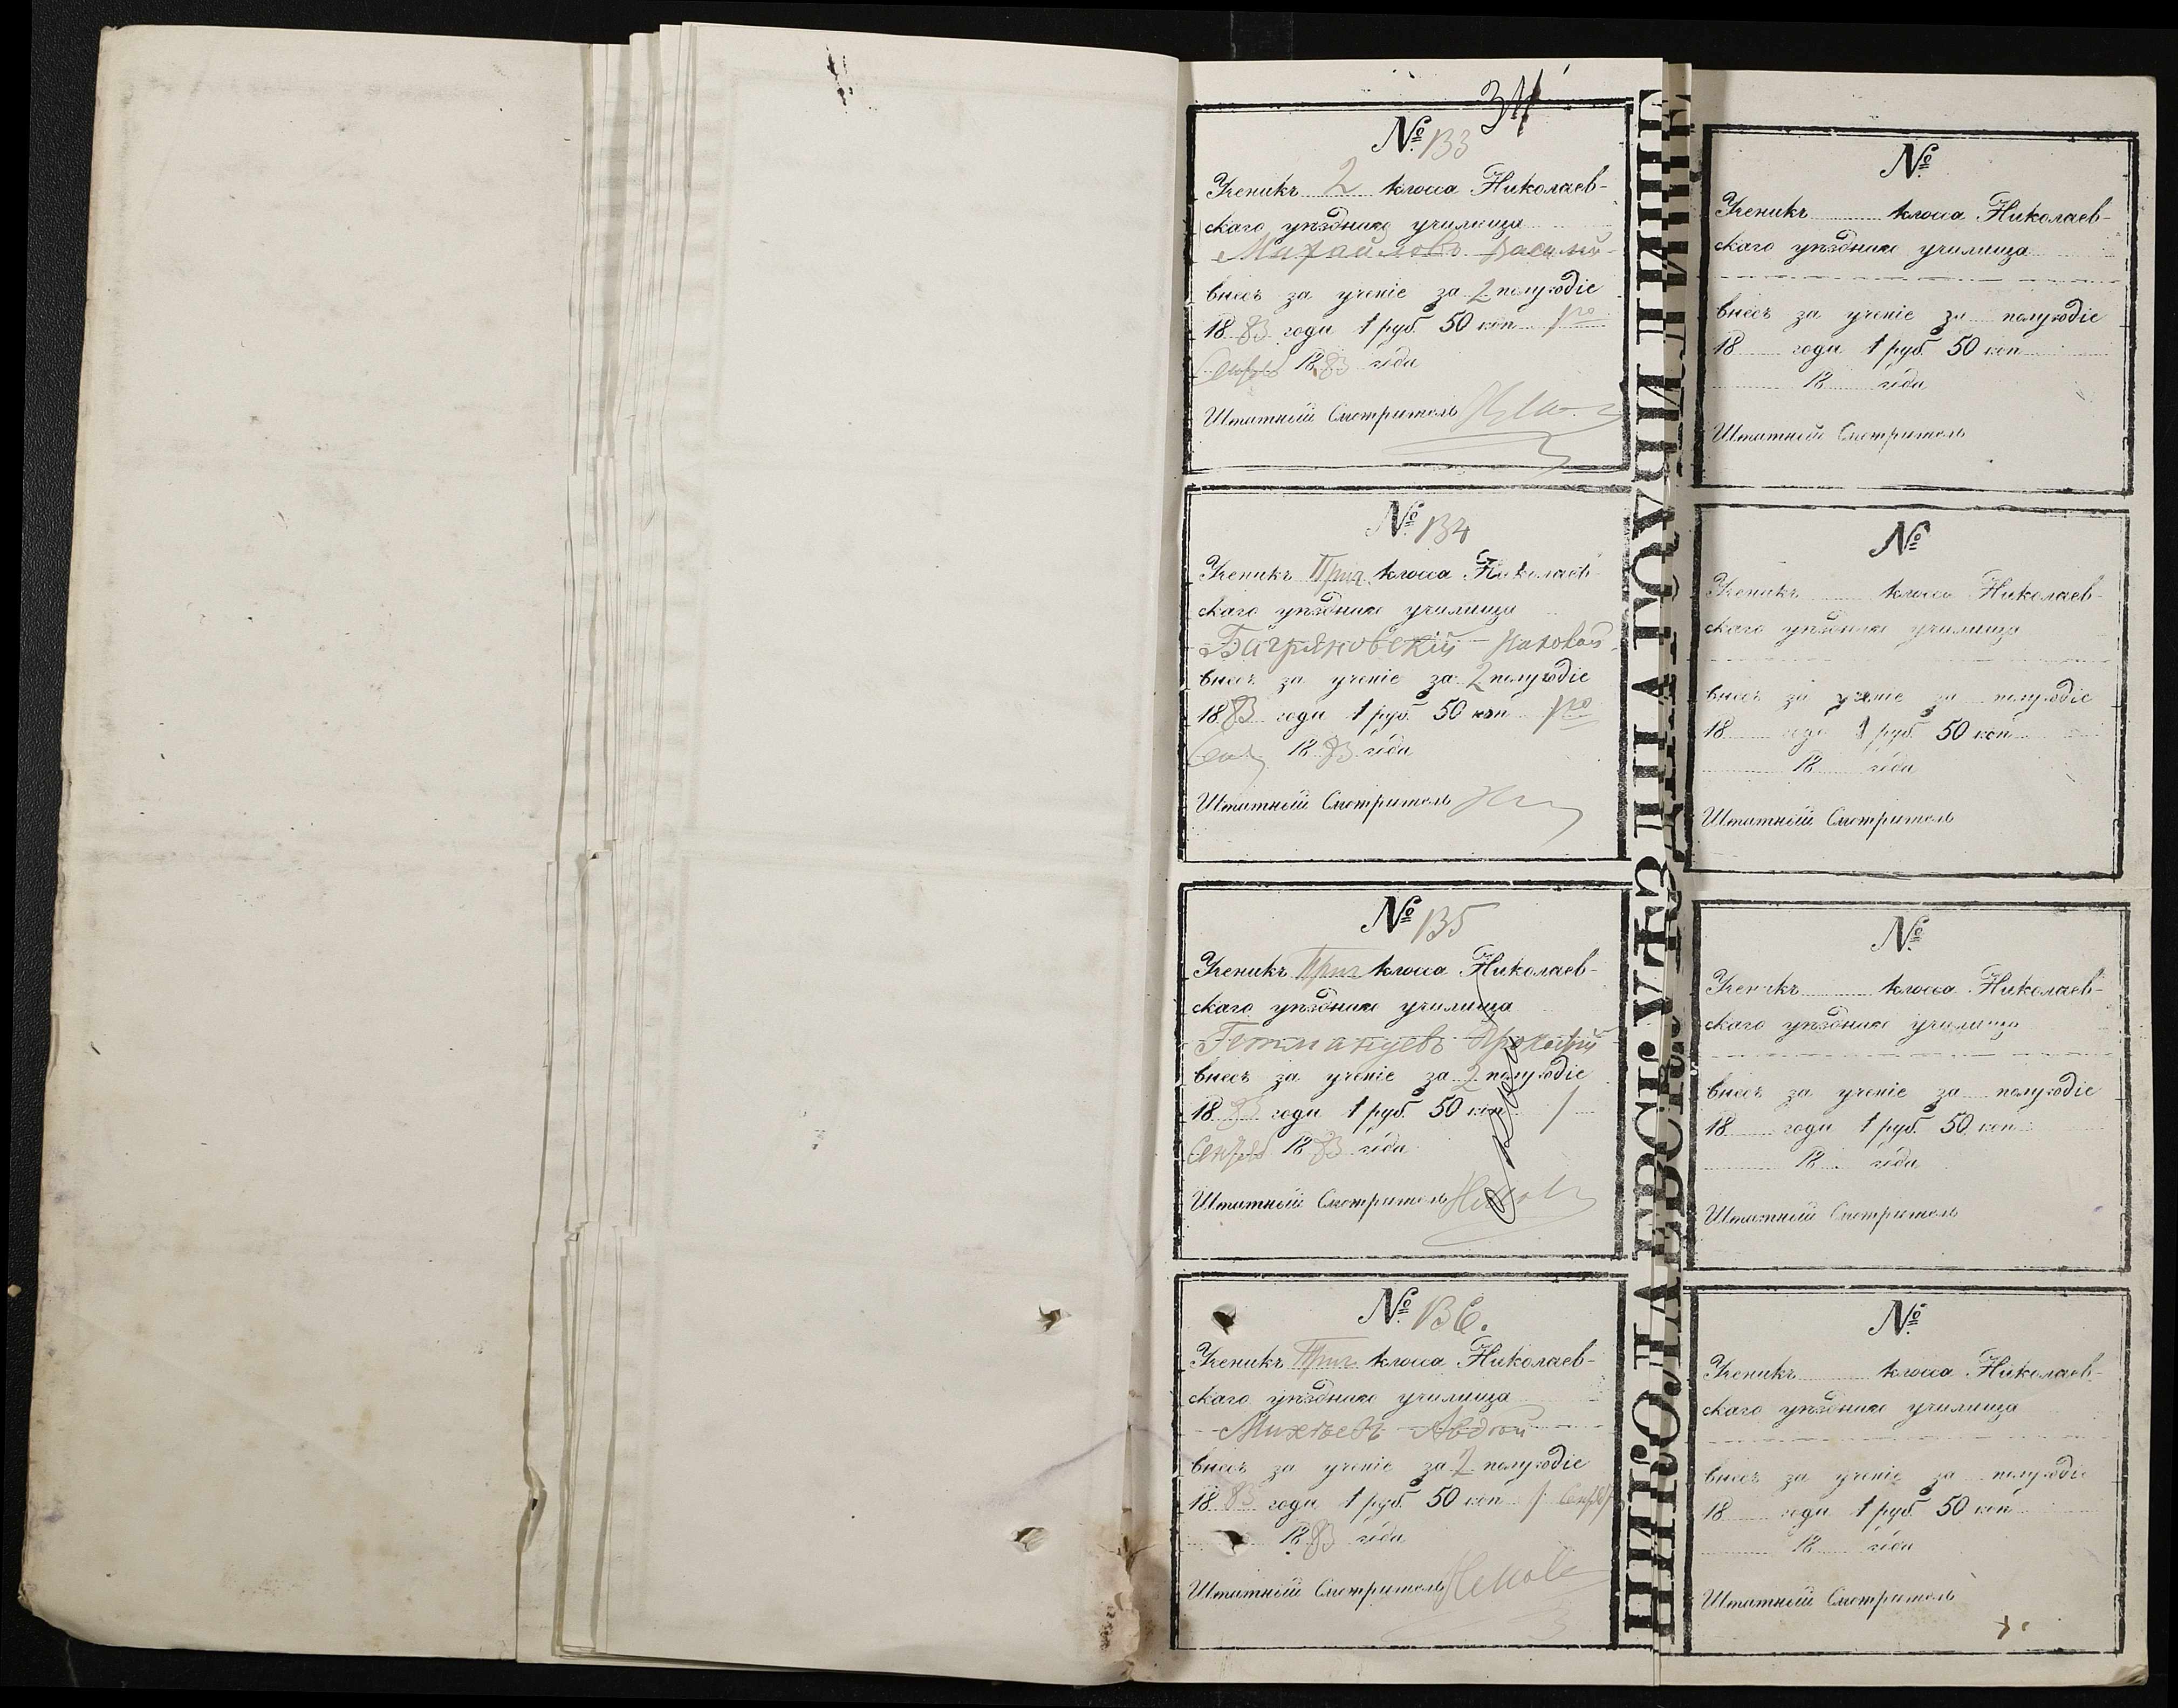 34
№ 133
Ученикъ 2 класса Николаев-
скаго уѣзднаго училища
Михайловъ Василій
внесъ за ученіе за 2 полугодіе
1883 года 1 руб. 50 коп. 1го
1883 года
Штатный Смотритель
№ 134
Ученикъ Приг. класса Николаев-
скаго уѣзднаго училища
Багряновскій
внесъ за ученіе за 2 полугодіе
1883 года 1 руб. 50 коп. 1го
1883 года
Штатный Смотритель
№ 135
Ученикъ Приг класса Николаев-
скаго уѣзднаго училища
Гетманцевъ
внесъ за ученіе за 2 полугодіе
1883 года 1 руб. 50 коп. 1
1883 года
Штатный Смотритель
№ 136.
Ученикъ Приг класса Николаев-
скаго уѣзднаго училища
Михѣевъ
внесъ за ученіе за 2 полугодіе
1883 года 1 руб. 50 коп. 1
1883 года
Штатный Смотритель
НИКОЛАЕВСК. УѢЗДНАГО УЧИЛИЩ
№
Ученикъ класса Николаев-
скаго уѣзднаго училища
внесъ за ученіе за полугодіе
18 года 1 руб. 50 коп
18 года
Штатный Смотритель
№
Ученикъ класса Николаев-
скаго уѣзднаго училища
внесъ за ученіе за полугодіе
18 года 1 руб. 50 коп
18 года
Штатный Смотритель
№
Ученикъ класса Николаев-
скаго уѣзднаго училища
внесъ за ученіе за полугодіе
18 года 1 руб. 50 коп
18 года
Штатный Смотритель
№
Ученикъ класса Николаев-
скаго уѣзднаго училища
внесъ за ученіе за полугодіе
18 года 1 руб. 50 коп
18 года
Штатный Смотритель